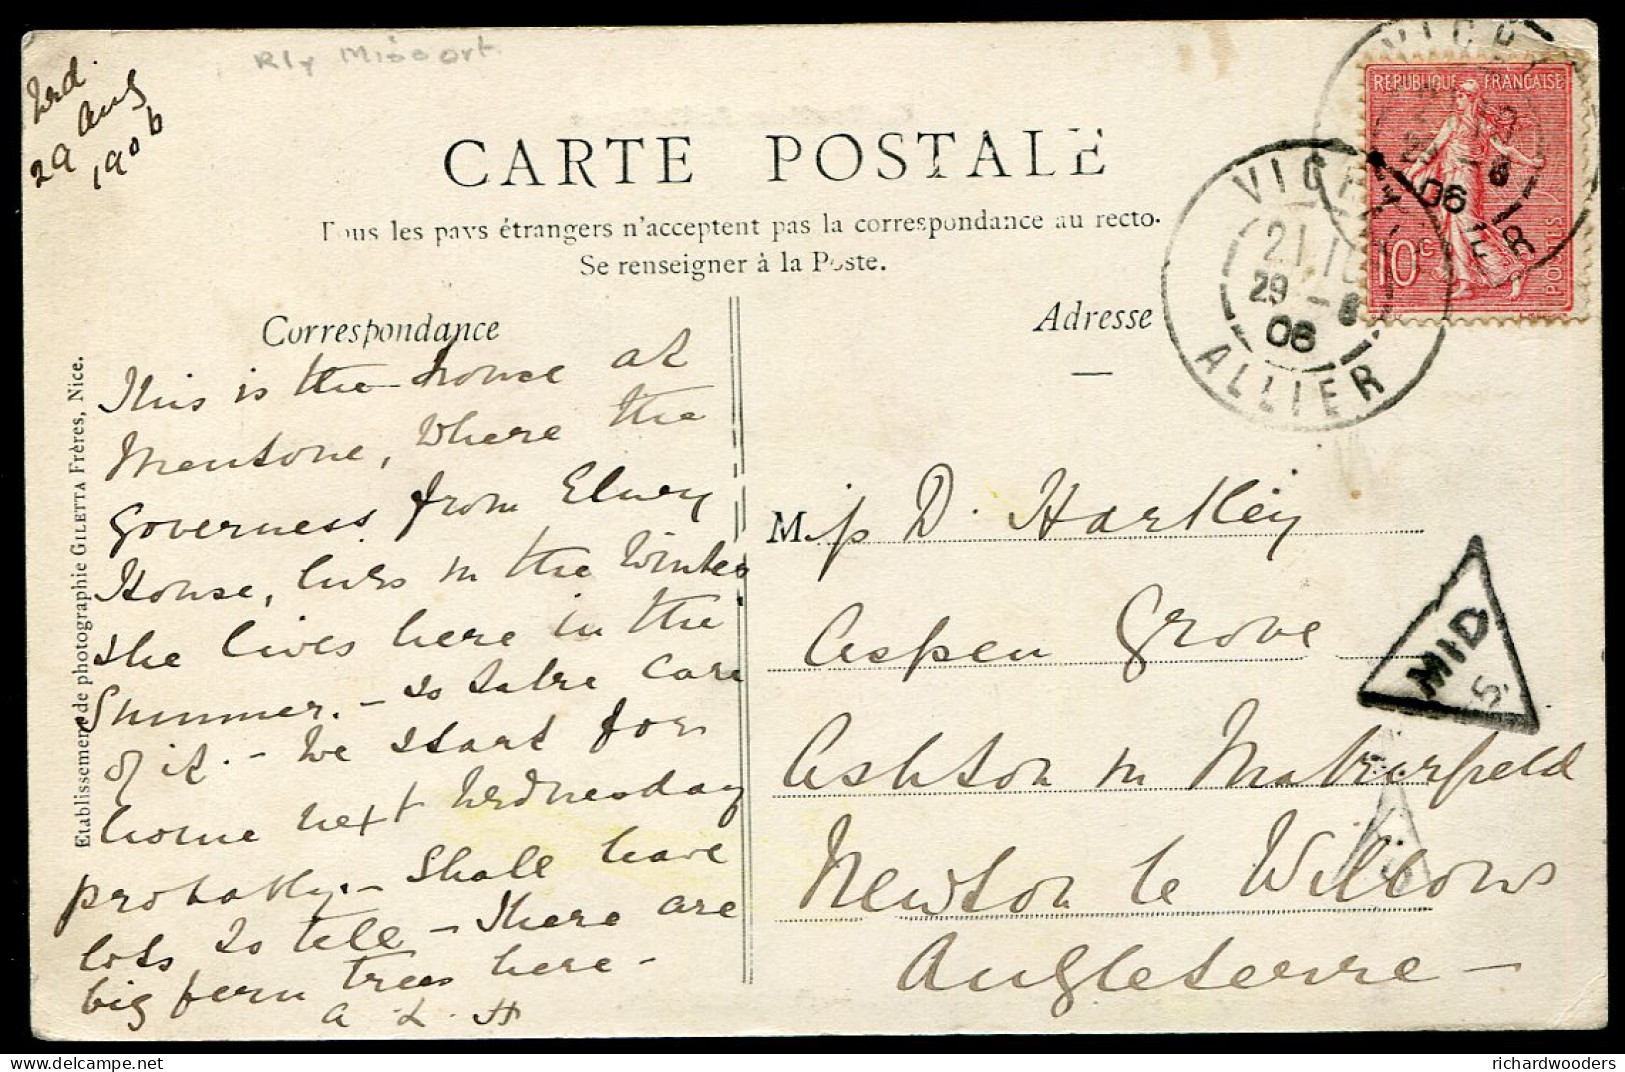 Rly Missort
Wed.
29 Aug
1906
CARTE POSTALE
Tous les pays étrangers n'acceptent pas la correspondance au recto.
Se renseigner à la Poste.
Correspondance
Adresse
REPUBLIQUE FRANÇAISE
POSTES
10c
06
VICHY
21 10
29 - 8
06
ALLIER
Etablissement de photographie GILETTA Frères, Nice.
This is the house at
Mentone, where the
Governess from
House, lives in the Winter
she lives here in the
Summer. - so take care
of it. - We start for
home next Wednesday
probably. - Shall have
lots to tell - There are
big fern trees here -
A. L. H
M D. Hartley
Aspen Grove
Ashton in Makerfield
Newton le Willows
Angleterre -
MID
S.
richardwooders